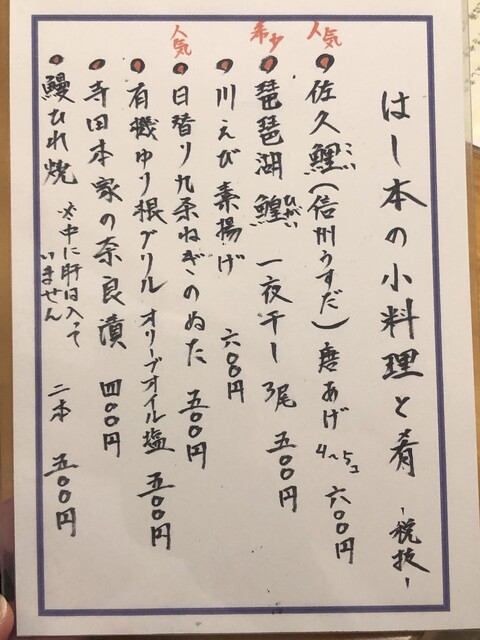 はし本の小料理と肴 -税抜-
人気
佐久鯉(信州うすだ)唐あげ 4〜5コ 六〇〇円
こい
希少
琵琶湖 鰉 一夜干し 3尾 五〇〇円
ひがい
川えび素揚げ 六〇〇円
人気
日替り九条ねぎのぬた 五〇〇円
有機ゆり根グリル オリーブオイル塩 五〇〇円
寺田本家の奈良漬 四〇〇円
鰻ひれ焼 ※中に肝は入って
いません 二本 五〇〇円